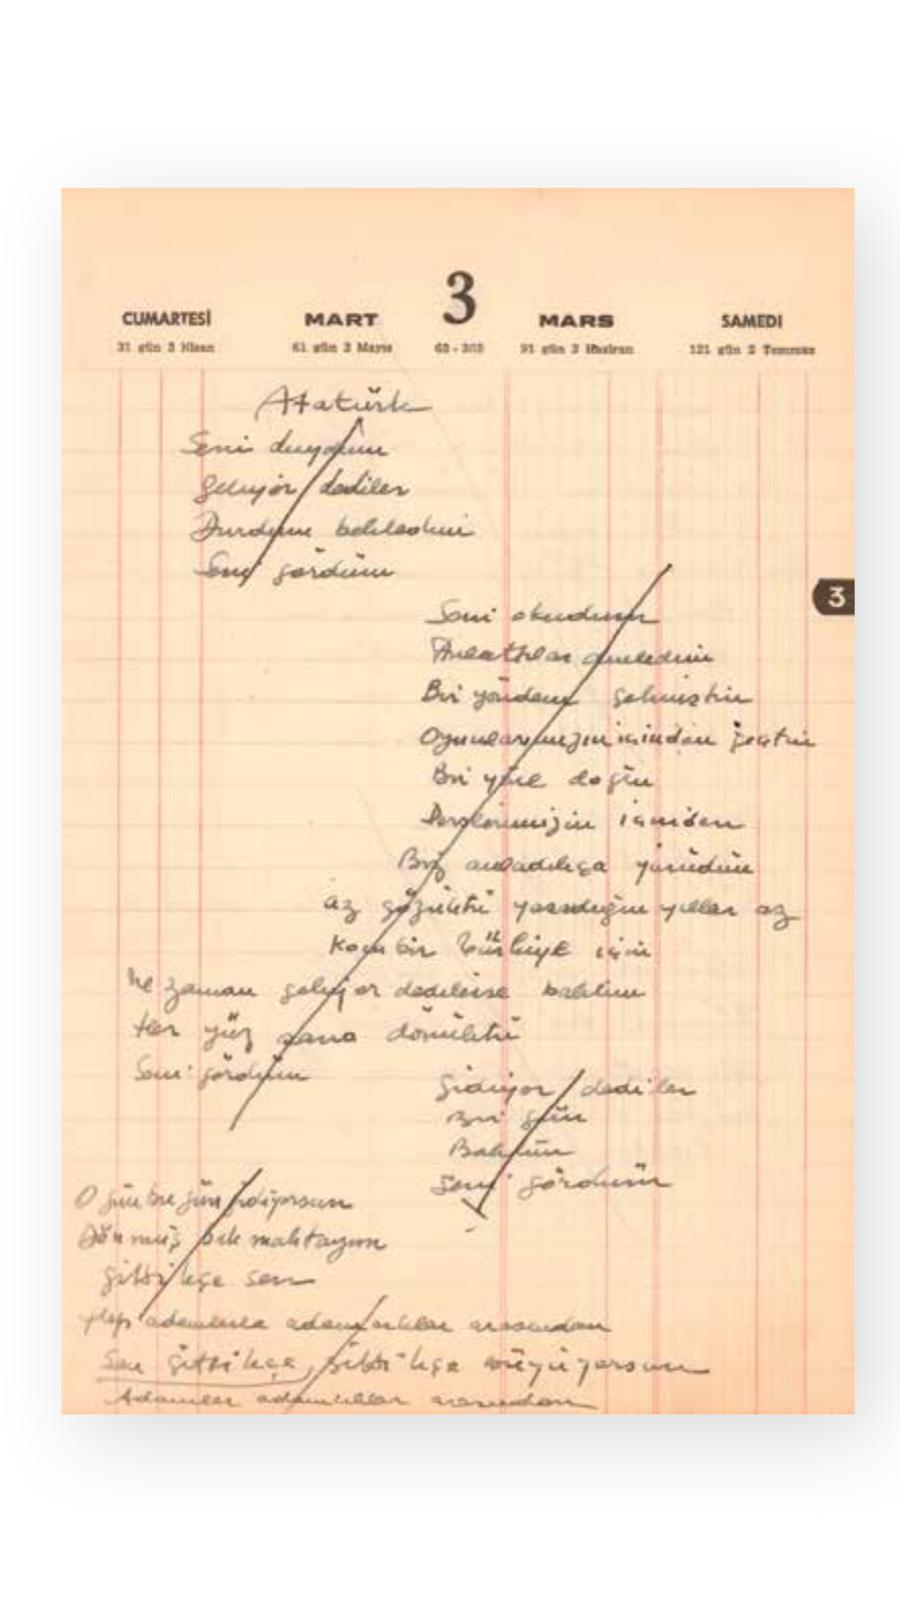 3
CUMARTESİ MART MARS SAMEDI
31 gün 3 Nisan 61 gün 3 Mayıs 62 - 303 91 gün 2 Haziran 121 gün 2 Temmuz
Atatürk
Seni duydum
Geliyor dediler
Durdum bekledim
Seni gördüm
3
Seni okudum
Anlattılar dinledim
Bir yönden gelmiştin
Oyunlarımızın içinden geçtin
Bir yöne doğru
Derslerimizin içinden
Biz anladıkça yürüdün
az gözüktü yaşadığın yıllar az
Koca bir Türkiye için
Ne zaman geliyor dedilerse baktım
Her yüz sana dönüktü
Seni gördüm
Gidiyor dediler
Bir gün
Baktım
Seni gördüm
O gün bu gün gidiyorsun
Dönmüş bakmaktayım
Gittikçe sen
adamlarla adamcıklar arasından
Sen gittikçe, gittikçe büyüyorsun
Adamlar adamcıklar arasından